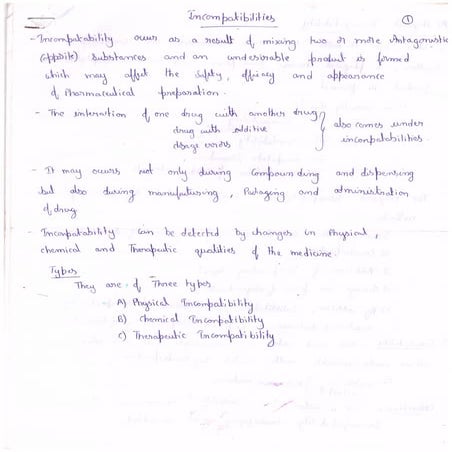 Incompatibilities
1
- Incompatability occurs as a result of mixing two or more Antagonistic
(opposite) substances and an undesirable product is formed
which may affect the safety, efficacy and appearance
of Pharmaceutical preparation.
- The interaction of one drug with another drug
drug with additive
also comes under
incompatabilities.
- It may occurs not only during compounding and dispensing
but also during manufacturing, Packaging and administration
of drug
- Incompatability can be detected by changes in Physical,
chemical and Therapeutic qualities of the medicine.
Types
They are of Three types
A) Physical Incompatibility
B) Chemical Incompatibility
C) Therapeutic Incompatibility